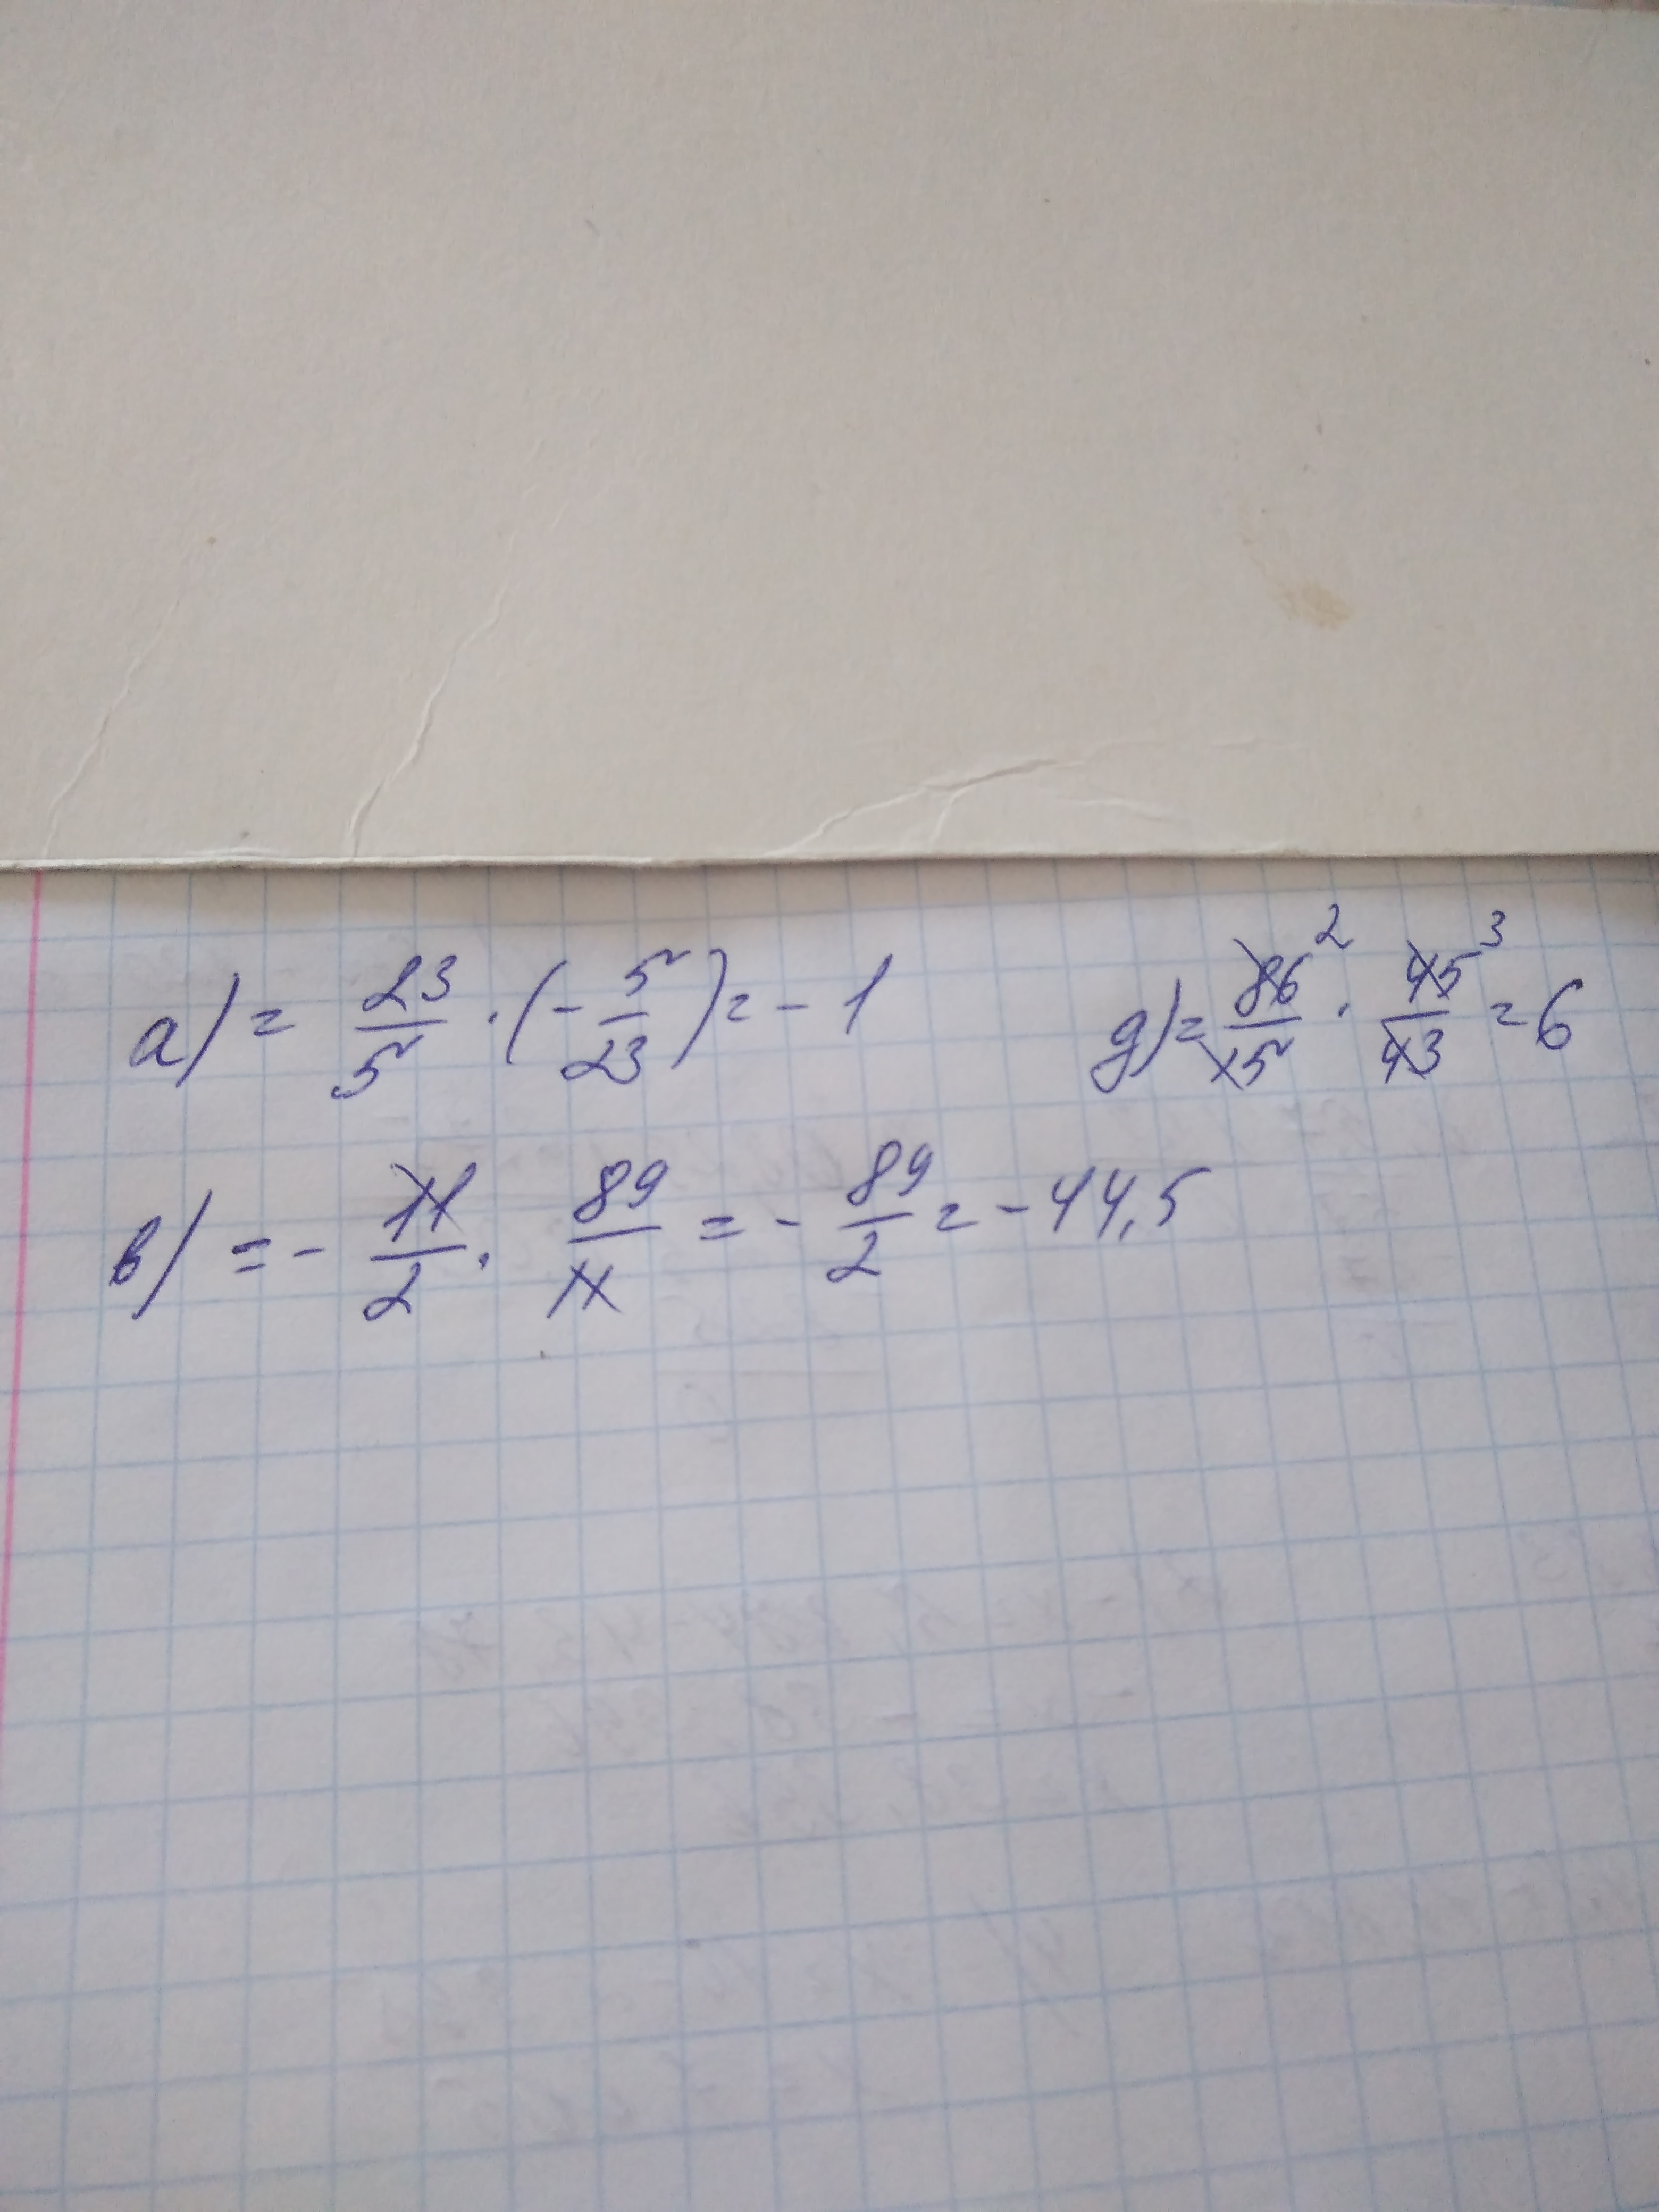 а) = 23/5 · (- 5/23) = - 1
д) = 86²/15 · 45³/43 = 6
в) = - 11/2 · 89/11 = - 89/2 = - 44,5